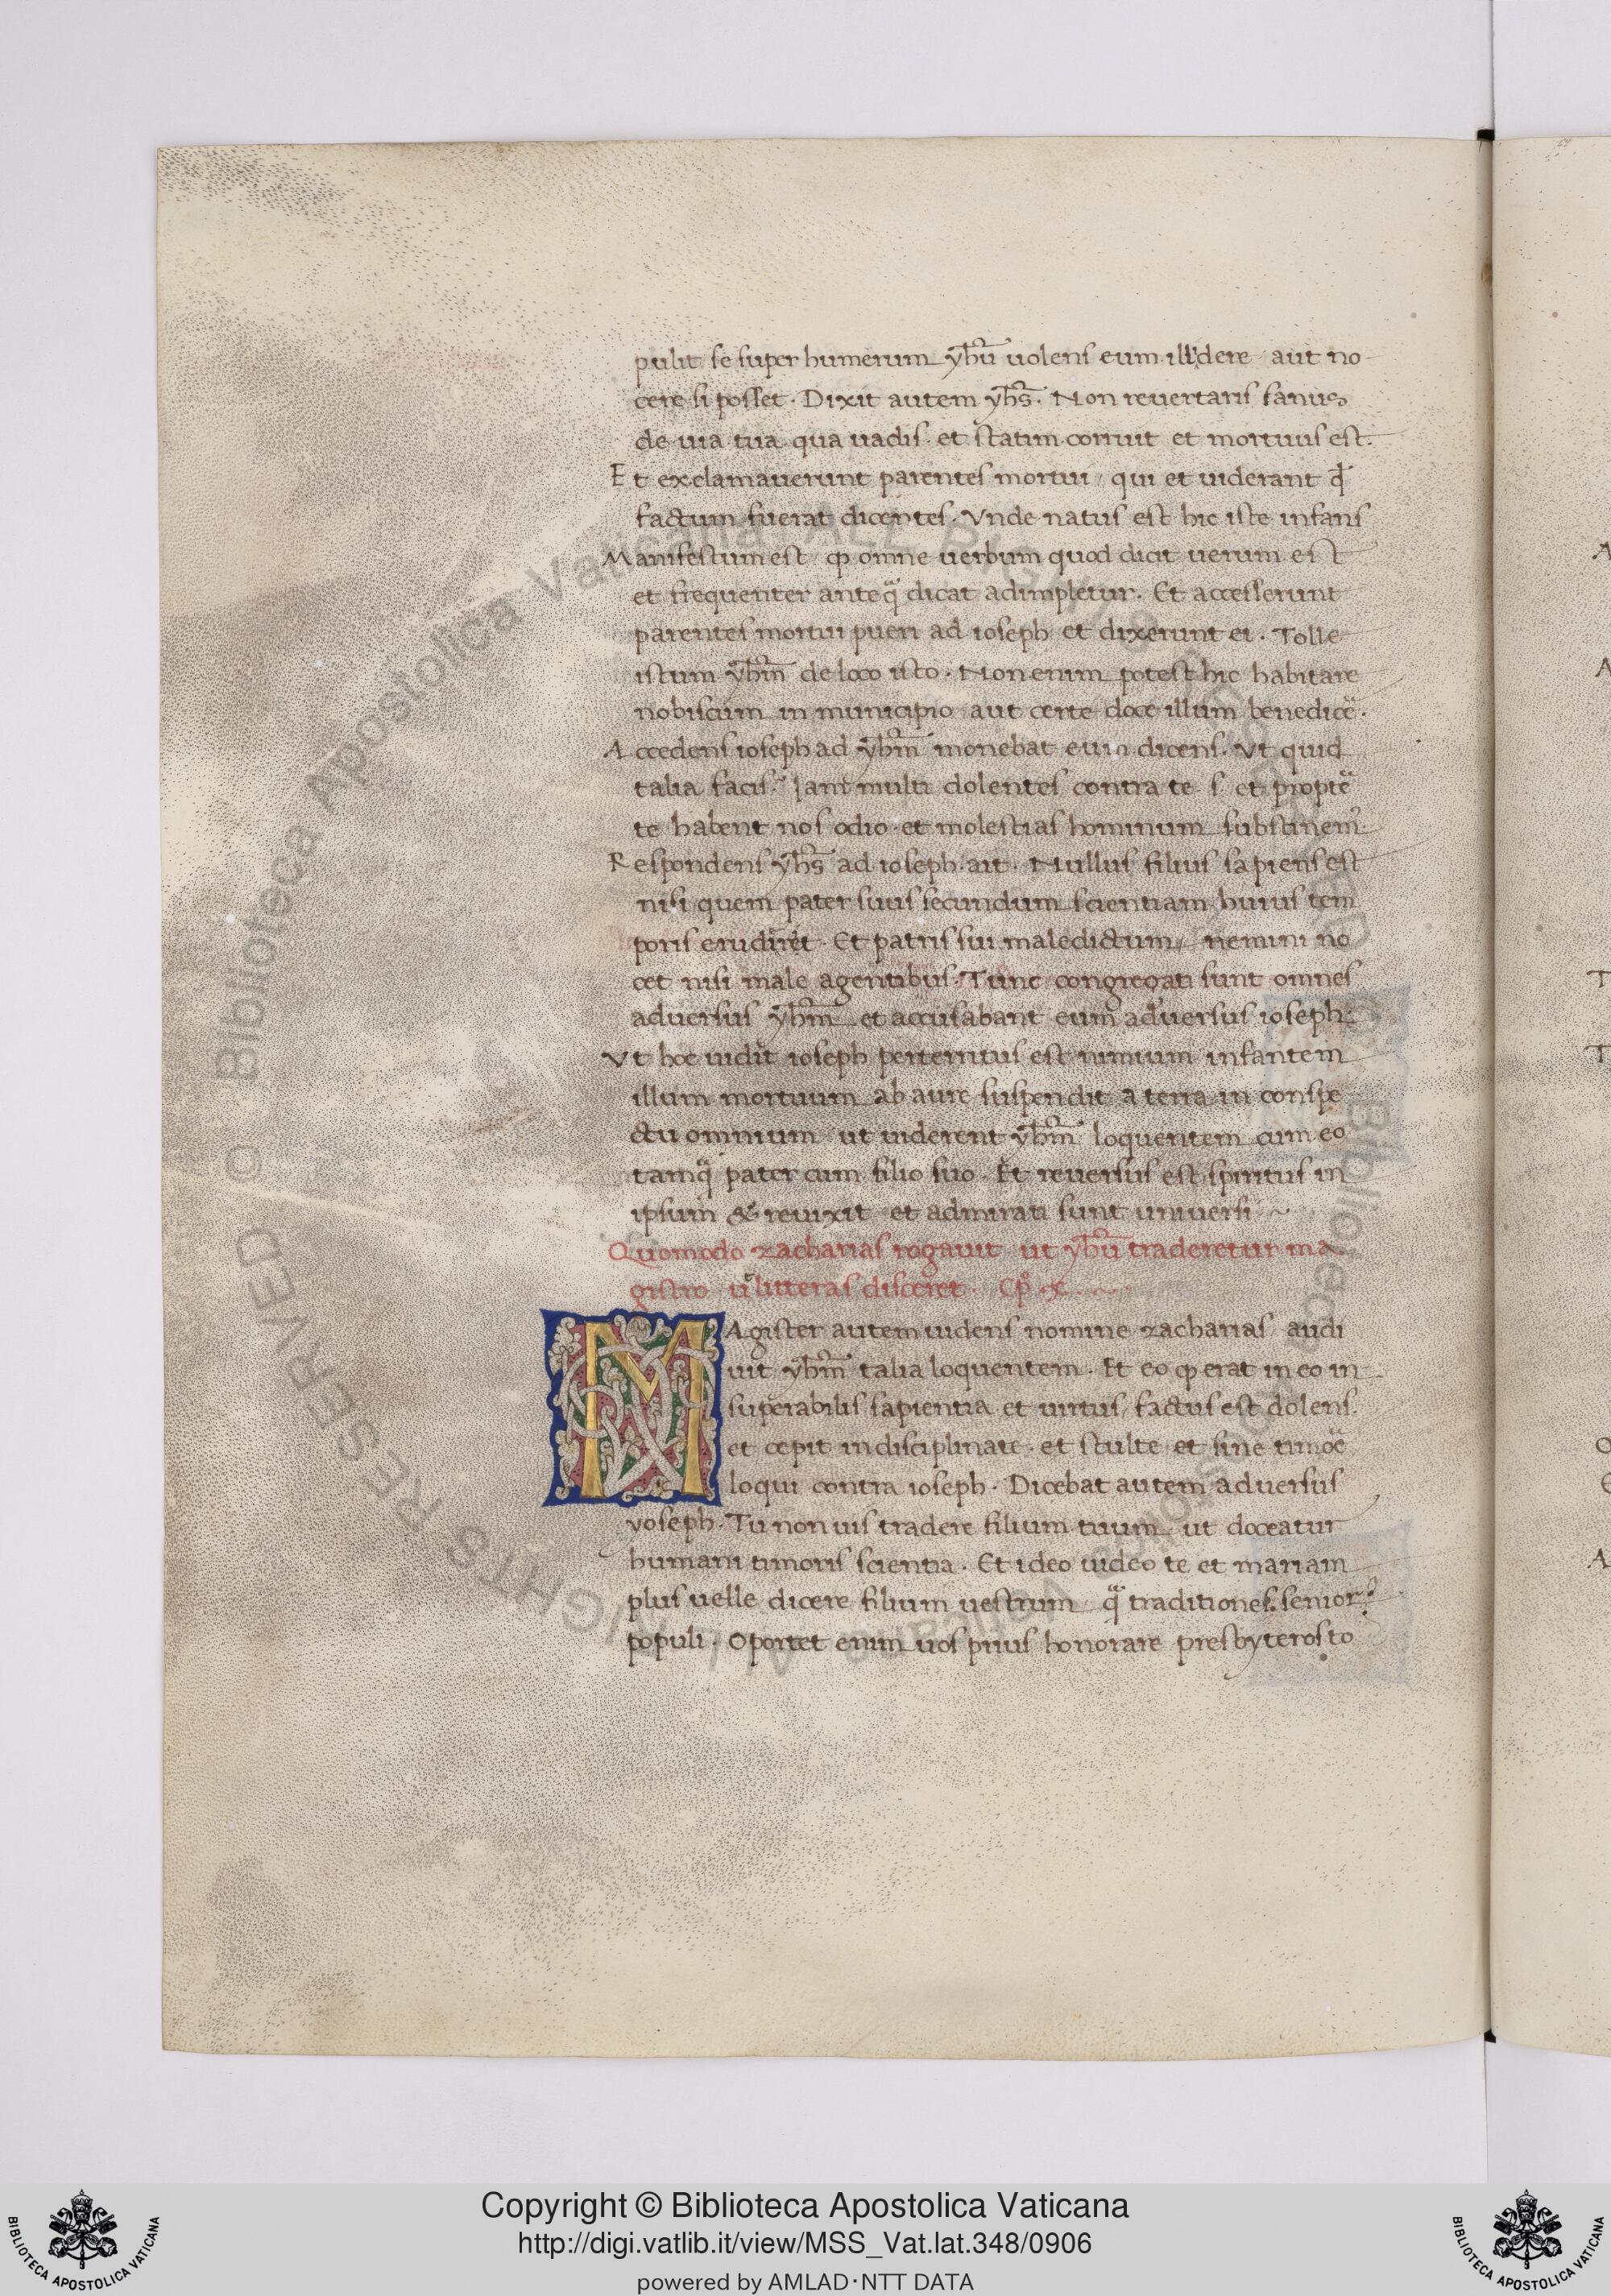 pulit se super humerum yh̅u̅ uolens eum illidere aut no-
cere si posset. Dixit autem yh̅s̅. Non reuertaris sanus
de uia tua qua uadis. et statim corruit et mortuus est.
Et exclamauerunt parentes mortui, qui et uiderant qđ
factum fuerat dicentes. Vnde natus est hic iste infans
Manifestum est ꝙ omne uerbum quod dicit uerum est
et frequenter anteq̃ dicat adimpletur. Et accesserunt
parentes mortui pueri ad ioseph et dixerunt ei. Tolle
istum yh̅m̅ de loco isto. Non enim potest hic habitare
nobiscum in municipio aut certe doce illum benedicẽ.
Accedens ioseph ad yh̅m̅ monebat eum dicens. Vt quid
talia facis? Iam multi dolentes contra te s̄ et proptẽ
te habent nos odio et molestias hominum substinem᷒
Respondens yh̅s̅ ad ioseph ait. Nullus filius sapiens est
nisi quem pater suus secundum scientiam huius tem
poris erudiret. Et patris sui maledictum, nemini no
cet nisi male agentibus. Tunc congregati sunt omnes
aduersus yh̅m̅ et accusabant eum aduersus ioseph.
Vt hoc uidit ioseph perterritus est nimium infantem
illum mortuum ab aure suspendit a terra in conspe
ctu omnium ut uiderent yh̅m̅ loquentem cum eo
tamq̃ pater cum filio suo. Et reuersus est spiritus in
ipsum & reuixit et admirati sunt uniuersi ~
Quomodo zacharias rogauit ut yh̅u̅ traderetur ma
gistro ut litteras disceret. Cp̊. x. ~
MAgister autem iudens nomine zacharias audi
uit yh̅m̅ talia loquentem. Et eo ꝙ erat in eo in
superabilis sapientia et uirtus, factus est dolens.
et cepit indisciplinate et stulte et sine timoẽ
loqui contra ioseph. Dicebat autem aduersus
yoseph. Tu non uis tradere filium tuum ut doceatur
humani timoris scientia. Et ideo uideo te et mariam
plus uelle dicere filium uestrum q̃ traditiones senior᷒
populi. Oportet enim uos prius honorare presbyteros to
Copyright © Biblioteca Apostolica Vaticana
http://digi.vatlib.it/view/MSS_Vat.lat.348/0906
powered by AMLAD·NTT DATA
BIBLIOTECA APOSTOLICA VATICANA
BIBLIOTECA APOSTOLICA VATICANA